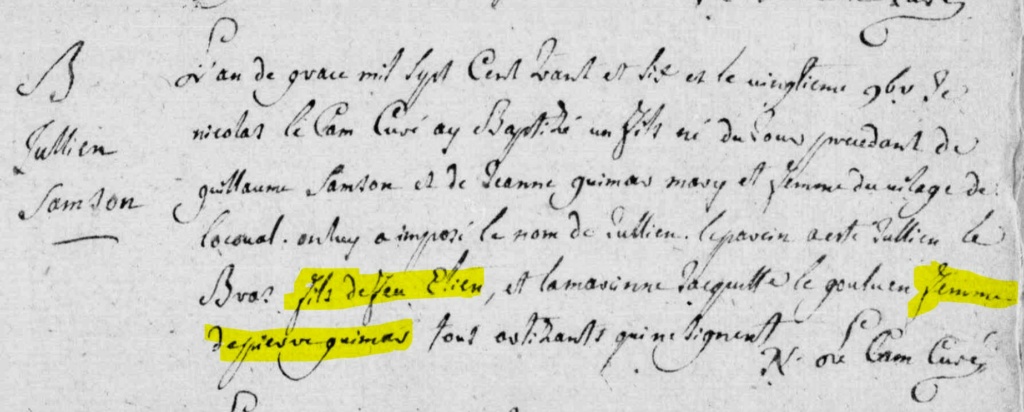 B
Jullien
Samson
L'an de grace mil sept Cent trant et six et le vingtieme 9br Je
nicolas le Cam Curé ay Baptizé un fils né du Jour precedant de
guillaume Samson et de Jeanne guimar mary et femme du vilage de
locoual. on luy a imposé le nom de Jullien. le parein a esté Jullien le
Bras fils de feu Etien, et la mareinne Jacquette le femme
de pierre guimar tous artizants qui ne signent
N. Cam Curé